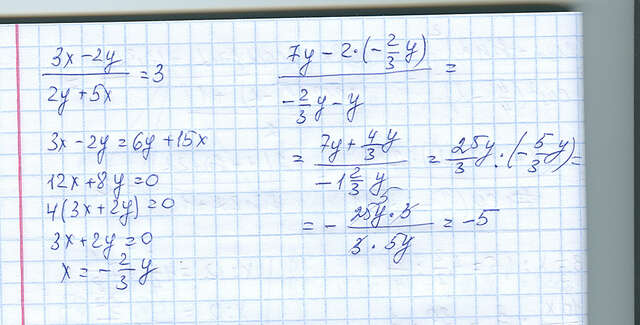 (3x-2y)/(2y+5x) = 3
3x-2y = 6y+15x
12x+8y = 0
4(3x+2y) = 0
3x+2y = 0
x = -2/3 y
(7y-2·(-2/3 y))/(-2/3 y-y) =
= (7y+4/3 y)/(-1 2/3 y) = 25y/3 : (-5/3 y) =
= - (25y·3)/(3·5y) = -5